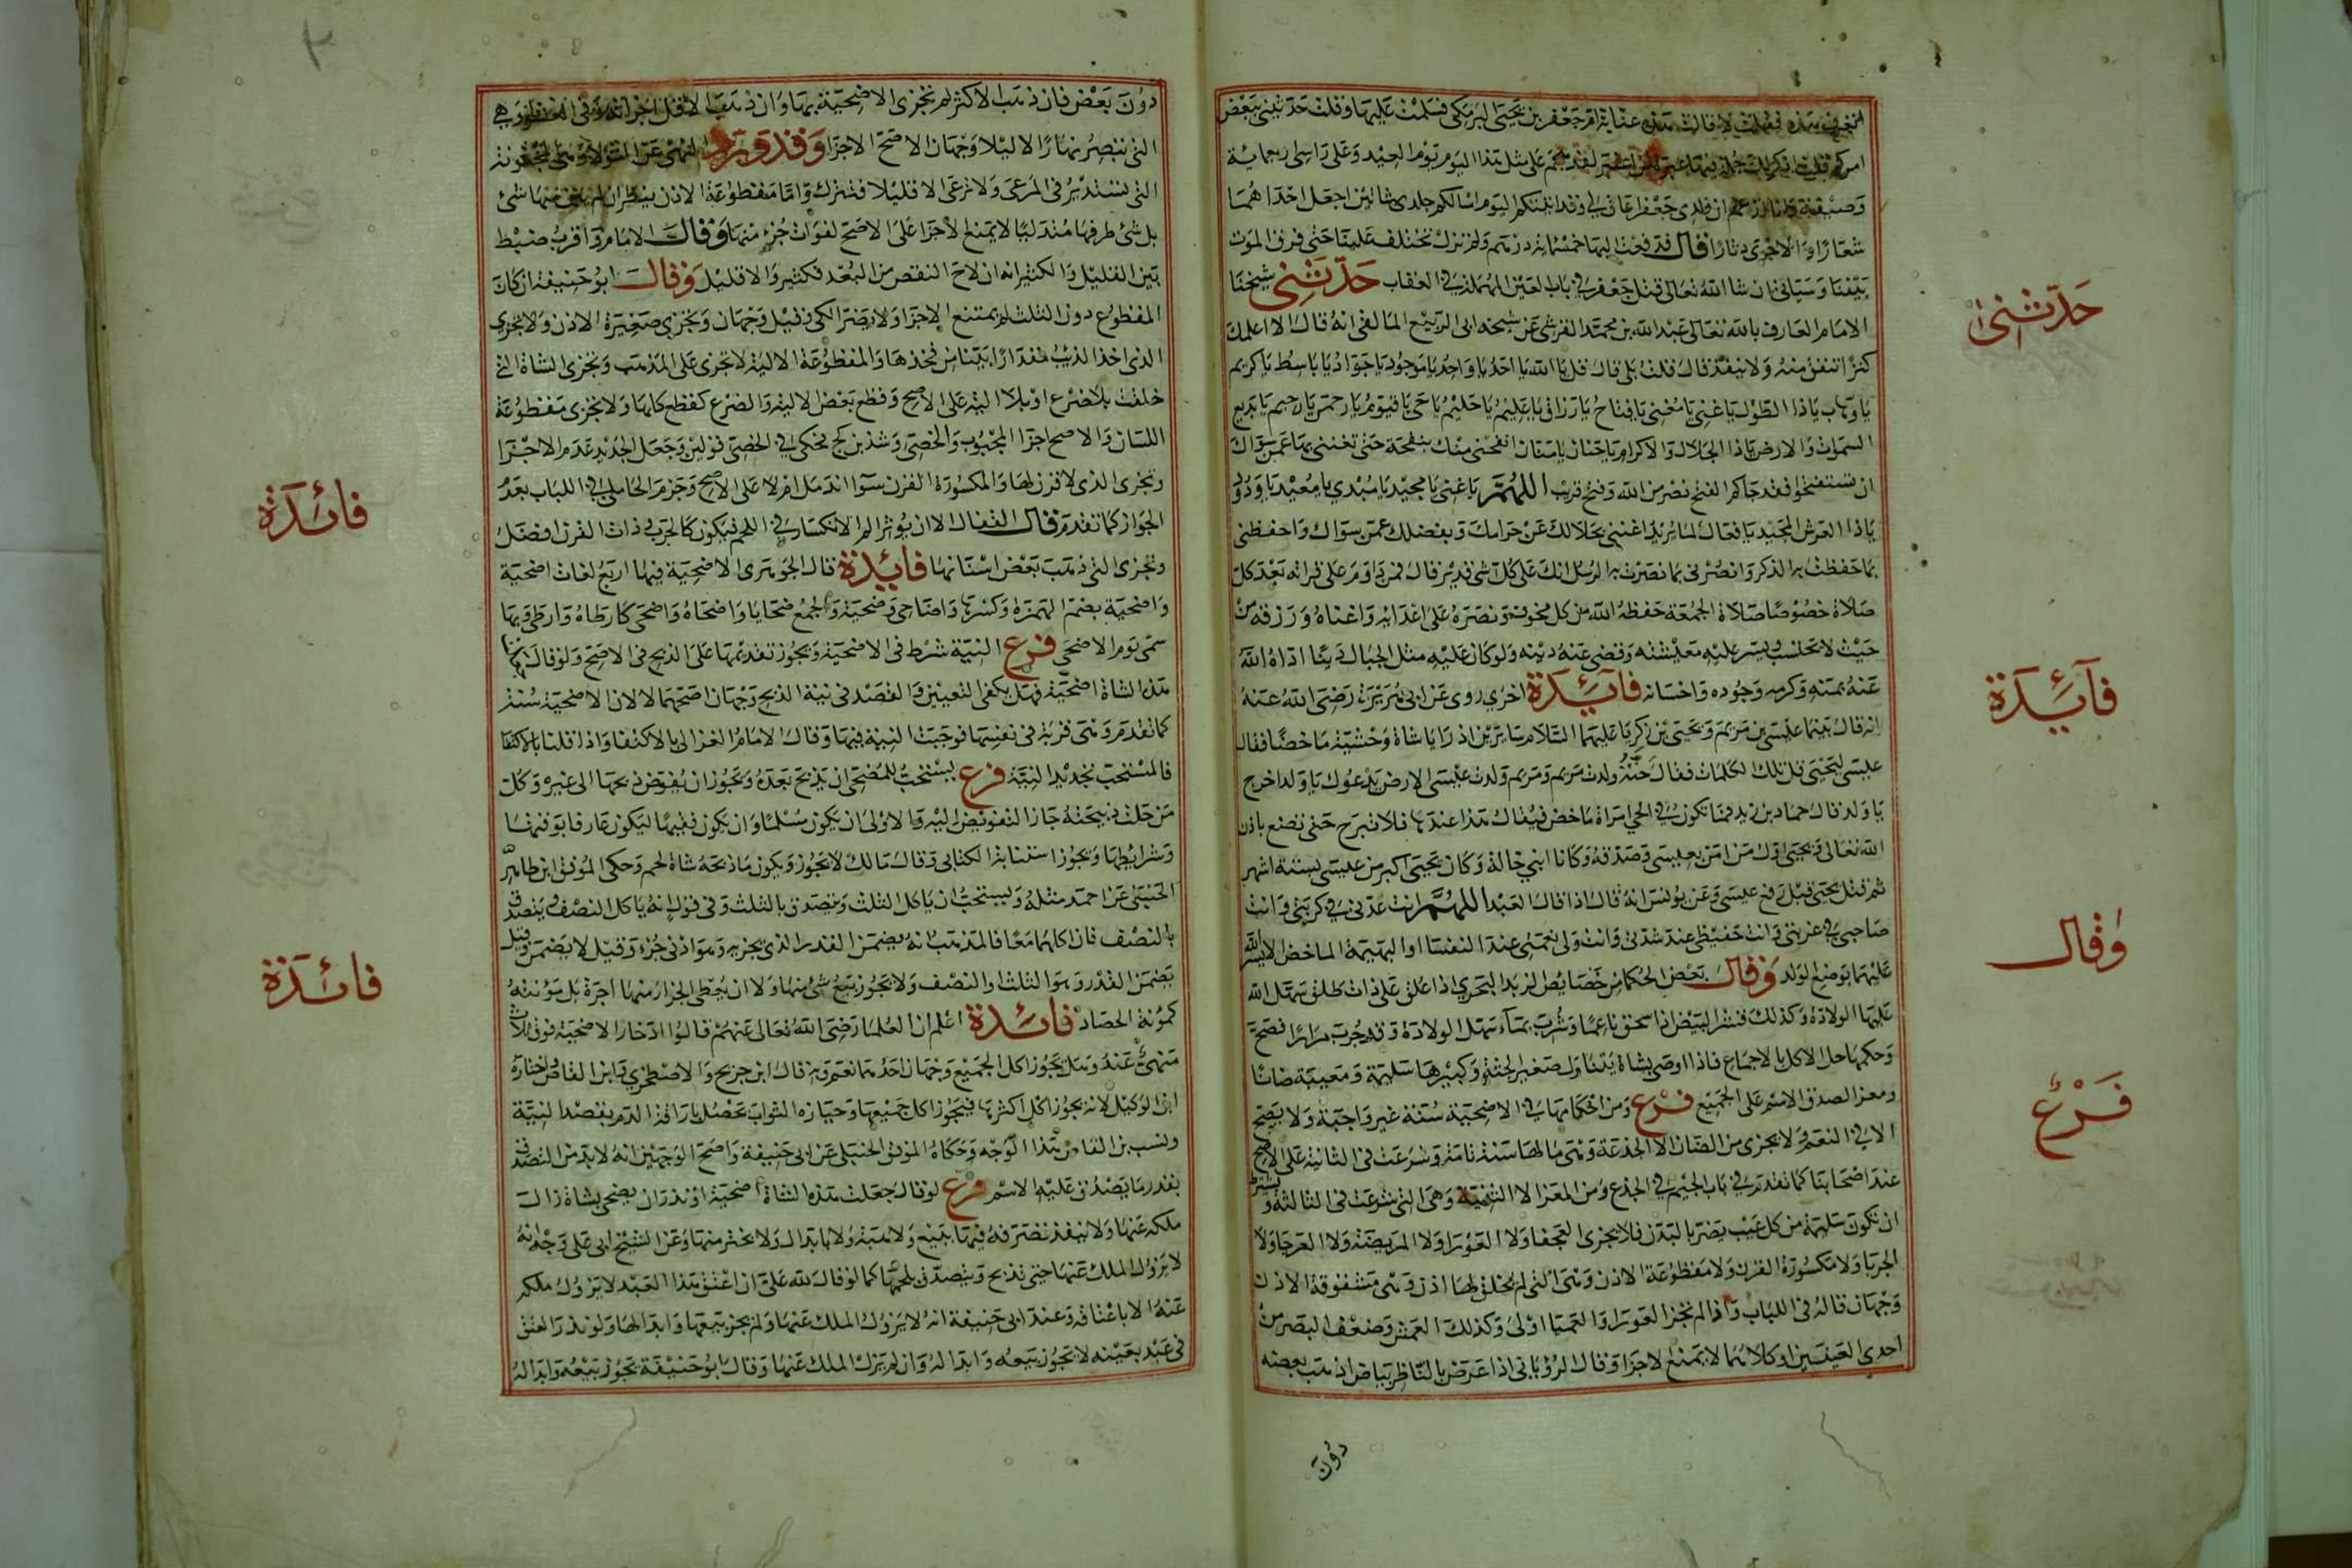 اتعرف هذه فقلت لا قالت هذه عتابة ام جعفر بن يحيى البرمكي فسلمت عليها وقلت حدثيني ببعض
امركم قالت اذكر لك جملة فيها عبرة لمن اعتبر لقد هجم على مثل هذا اليوم يوم العيد وعلى راسي اربعماية
وصيفة وانا ازعم ان ولدي جعفرا عاق لي وقد اتيتكم اليوم اسالكم جلدي شاتين اجعل احداهما
شعارا والاخرى دثارا قال فدفعت اليها خمسماية درهم ولم تزل تختلف علينا حتى فرق الموت
بيننا وسياتي ان شا الله تعالى قتل جعفر في باب العين المهملة في العقاب حدثني شيخنا
الامام العارف بالله تعالى عبد الله بن محمد القرشي عن شيخه ابي الربيع المالقي انه قال الا اعلمك
كنزا تنفق منه ولا ينفد قال قلت بلى قال قل يا الله يا احد يا واحد يا موجود يا جواد يا باسط يا كريم
يا وهاب يا ذا الطول يا غني يا مغني يا فتاح يا رزاق يا عليم يا حليم يا حي يا قيوم يا رحمن يا رحيم يا بديع
السموات والارض يا ذا الجلال والاكرام يا حنان يا منان انفحني منك بنفحة حتى تغنني بها عمن سواك
ان تستفتحوا فقد جاكم الفتح نصر من الله وفتح قريب اللهم يا غني يا مجيد يا مبدي يا معيد يا ودود
يا ذا العرش المجيد يا فعال لما تريد اغنني بحلالك عن حرامك وبفضلك عمن سواك واحفظني
بما حفظت به الذكر وانصرني بما نصرت به الرسل انك على كل شي قدير قال فمن داوم على قراته بعد كل
صلاة خصوصا صلاة الجمعة حفظه الله من كل مخوف ونصره على اعدايه واغناه ورزقه من
حيث لا يحتسب ويسر عليه معيشته وقضى عنه دينه ولو كان عليه مثل الجبال دينا اداه الله
عنه بمنه وكرمه وجوده واحسانه فآئدة اخرى روى عن ابي هريرة رضي الله عنه
انه قال بينما عيسى بن مريم ويحيى بن زكريا عليهما السلام سايرين اذ رايا شاة وحشية ماخضا فقال
عيسى ليحيى قل تلك الكلمات فقال حنة ولدت مريم ومريم ولدت عيسى الارض يدعوك يا ولد اخرج
يا ولد قال حماد بن زيد فما تكون في الحي امراة ماخض فيقال هذا عندها فلا تبرح حتى تضع باذن
الله تعالى ويحيى اول من امن بعيسى وصدقه وكانا ابني خالة وكان يحيى اكبر من عيسى بستة اشهر
ثم قتل يحيى قبل رفع عيسى وعن يونس انه قال اذا قال العبد اللهم انت عدتي في كربتي وانت
صاحبي في غربتي وانت حفيظي عند شدتي وانت ولي نعمتي عند النفسا او البهيمة الماخض الا يسر الله
عليهما بوضع الولد وقال بعض الحكما من خصايص زبد البحر اذا علق على ذات طلق سهل الله
عليها الولادة وكذلك قشر البيض اذا سحق ناعما وشرب بماء سهل الولادة وقد جرب مرارا فصح
وحكمها حل الاكل بالاجماع فاذا اوصى بشاة يتناول صغير الجثة وكبيرها سليمة ومعيبة ضانا
ومعزا لصدق الاسم على الجميع فرع ومن احكامها في الاضحية سنة غير واجبة ولا يصح
الا في النعم ولا يجزى من الضان الا الجذعة وهي مالها سنة تامة وشرعت في الثانية على الاصح
عند اصحابنا كما تقدم في باب الجيم في الجذع ومن المعز الا الثنية وهي التي شرعت في الثالثة ويشترط
ان تكون سليمة من كل عيب يضر بالبدن فلا يجزى العجفا ولا العورا ولا المريضة ولا العرجا ولا
الجربا ولا مكسورة القرن ولا مقطوعة الاذن وهي التي لم يخلق لها اذن وهي مشقوقة الاذن
وجهان قاله في اللباب واذا لم تجز العورا والعميا اولى وكذلك العمش وضعف البصر من
احدى العينين او كلاهما لا يمنع الاجزا وقال الروياني اذا عرض بالناظر بياض اذهب بعضه
دون
حدثنى
فآئدة
وقال
فرع
دون بعض فان ذهب الاكثر لم تجزى الاضحية بها وان ذهب الاقل اجزات وفى وهي
التي تبصر نهارا لا ليلا وجهان الاصح الاجزا وقد ورد النهي عن الثولا وهي المجنونة
التي تستدير في المرعى ولا ترعى الا قليلا فتترك واما مقطوعة الاذن ينظر ان لم يبن منها شئ
بل شئ طرفها متدليا لا يمنع الاجزا على الاصح لفوات جزء منها وقال الامام واقرب ضبط
بين القليل والكثير انه ان لاح النقص من البعد فكثير والا قليل وقال ابو حنيفة ان كان
المقطوع دون الثلث لم يمتنع الاجزا ولا يضر الكي وقيل وجهان وتجزي صغيرة الاذن ولا تجزي
الذي اخذ الذيب مقدارا بينا من فخذها والمقطوعة الالية لا تجزى على المذهب وتجزى الشاة التي
خلقت بلا ضرع او بلا الية على الاصح وقطع بعض الالية والضرع كقطع كلها ولا تجزى مقطوعة
اللسان والاصح اجزا المجبوب والخصي وشذ بن كج فحكي في الخصي قولين وجعل الجديد عدم الاجزا
وتجزى الذي لا قرن لها والمكسورة القرن سوا اندمل ام لا على الاصح وجزم المحاملي في اللباب بعدم
الجواز كما تقدم قال القفال الا ان يوثر الم الانكسار في اللحم فيكون كالجرب وذات القرن افضل
وتجزى التي ذهب بعض اسنانها فائدة قال الجوهرى الاضحية فيها اربع لغات اضحية
واضحية بضم الهمزة وكسرها واضاحي وضحية والجمع ضحايا واضحاة واضحى كارطاة وارطى وبها
سمى يوم الاضحى فرع النية شرط في الاضحية ويجوز تقديمها على الذبح في الاصح ولو قال
هذه الشاة اضحية فهل يكفي التعيين والقصد في نية الذبح وجهان اصحهما لا لان الاضحية سنة
كما تقدم وهي قربة في نفسها فوجبت النية فيها وقال الامام الغزالي بالاكتفا واذا قلنا بالاكتفا
فالمستحب تجديد النية فرع يستحب للمضحي ان يذبح بعده ويجوز ان يفوض ذبحها الى غيره وكل
من حلت ذبيحته جاز التفويض اليه والاولى ان يكون مسلما وان يكون فقيها ليكون عارفا بوقتها
وشرايطها ويجوز استنابة الكتابي وقال مالك لا يجوز ويكون ما ذبحه شاة لحم وحكى الموفق ابن طاهر
الحنبلي عن احمد مثله ويستحب ان ياكل الثلث ويتصدق بالثلث وفي قول انه ياكل النصف ويتصدق
بالنصف فان اكلها معا فالمذهب انه يضمن القدر الذي يجزيه وهو ادنى جزء وقيل لا يضمن وقيل
يضمن القدر وهو الثلث او النصف ولا يجوز بيع شئ منها ولا ان يعطى الجزار منها اجرة بل مؤنته
كمونة الحصاد فائدة اعلم ان العلما رضي الله تعالى عنهم قالوا ادخار الاضحية فوق ثلاث
منهي عنه وهل يجوز اكل الجميع وجهان احدهما نعم وبه قال ابن جريج والاصطخري وابن القاص واختاره
ابن الوكيل لانه يجوز اكل اكثرها فيجوز اكل جميعها وحيازة الثواب تحصل باراقة الدم بقصد النية
ونسب بن القاص هذا الوجه وحكاه الموفق الحنبلي عن ابي حنيفة واصح الوجهين انه لابد من التصدق
بقدر ما يصدق عليه الاسم فرع لو قال جعلت هذه الشاة اضحية او نذر ان يضحي بشاة زالت
ملكه عنها ولا ينفذ تصرفه فيها ببيع ولا هبة ولا بابدال ولا بخير منها وعن الشيخ ابي علي وجه انه
لا يزول الملك عنها حتى تذبح ويتصدق بلحمها كما لو قال لله علي ان اعتق هذا العبد لا يزول ملكه
عنه الا باعتاقه وعند ابي حنيفة انه لا يزول الملك عنها ولم يجز بيعها وابدالها ولو نذر العتق
في عبد بعينه لا يجوز بيعه وابداله وان لم يزل الملك عنها وقال ابو حنيفة يجوز بيعه وابداله
فائدة
فائدة